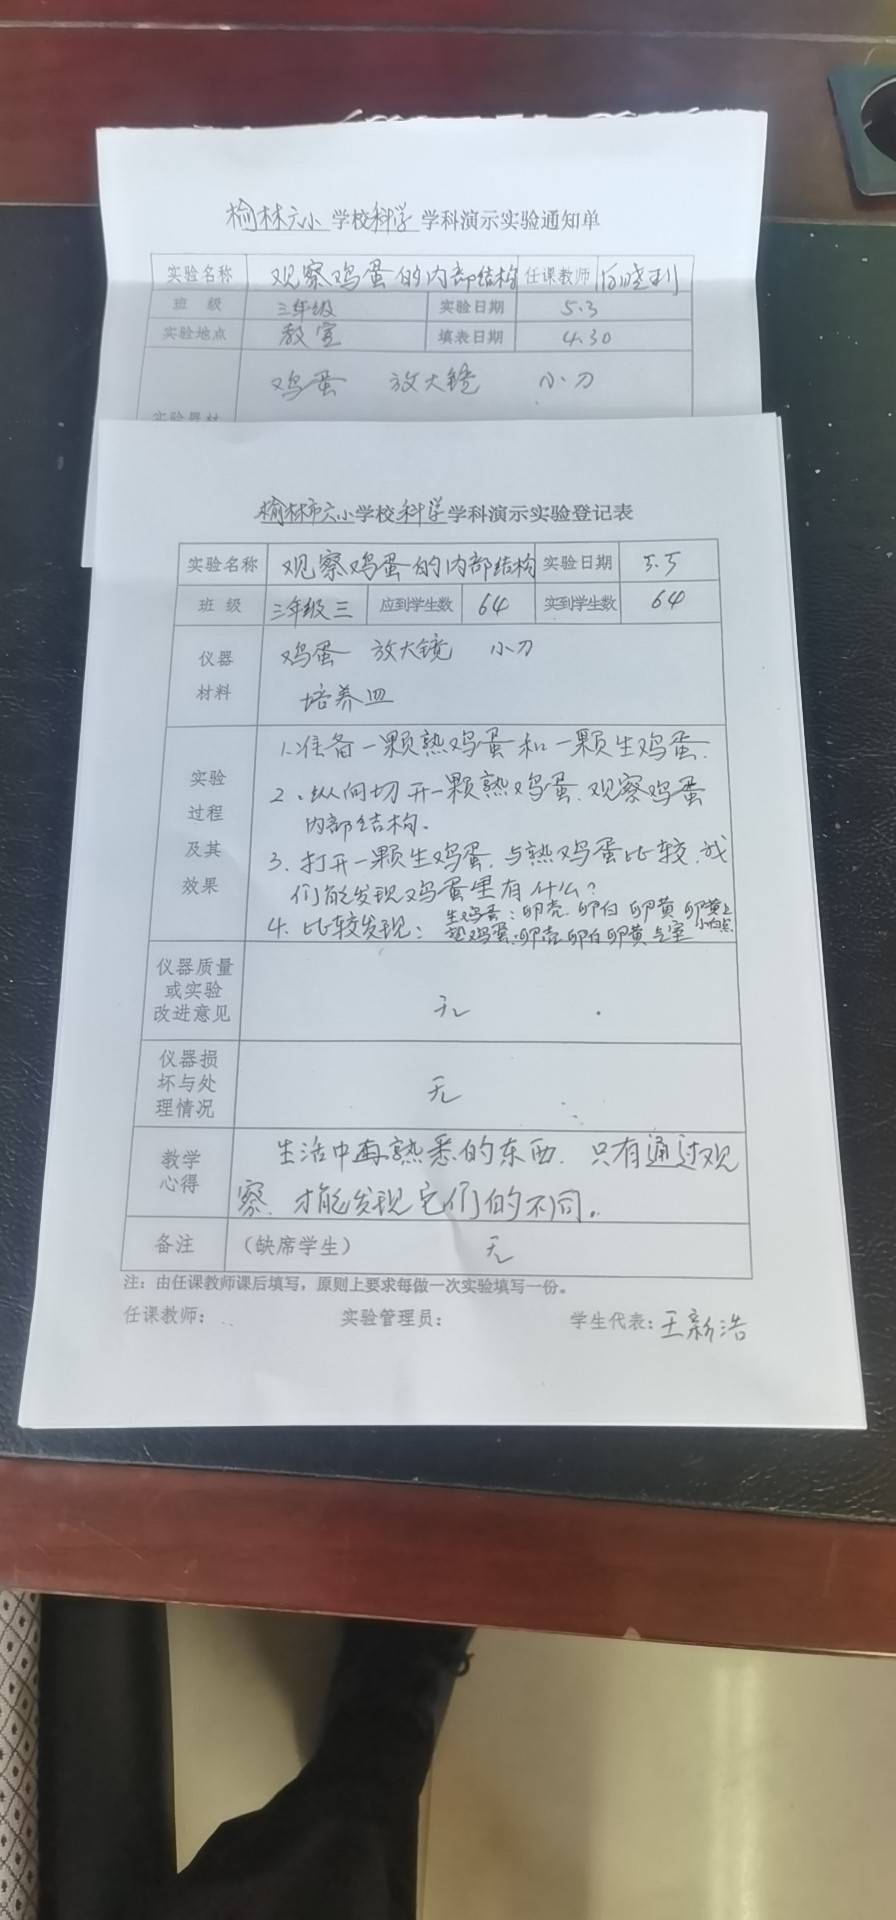 榆林六小学校科学学科演示实验通知单
实验名称 观察鸡蛋的内部结构 任课教师
班 级 三年级 实验日期 5.3
实验地点 教室 填表日期 4.30
鸡蛋 放大镜 小刀
实验器材
榆林市六小学校科学学科演示实验登记表
实验名称 观察鸡蛋的内部结构 实验日期 5.5
班 级 三年级三 应到学生数 64 实到学生数 64
仪器 鸡蛋 放大镜 小刀
材料 培养皿
实验
过程
及其
效果
1.准备一颗熟鸡蛋和一颗生鸡蛋.
2.纵向切开一颗熟鸡蛋.观察鸡蛋
内部结构.
3.打开一颗生鸡蛋.与熟鸡蛋比较.我
们能发现鸡蛋里有什么?
4.比较发现: 生鸡蛋:卵壳.卵白 卵黄 卵黄上小白点
熟鸡蛋:卵壳 卵白 卵黄 气室
仪器质量
或实验
改进意见
无
仪器损
坏与处
理情况
无
教学
心得
生活中再熟悉的东西.只有通过观
察.才能发现它们的不同。
备注 (缺席学生) 无
注：由任课教师课后填写，原则上要求每做一次实验填写一份。
任课教师: 实验管理员: 学生代表:王新浩